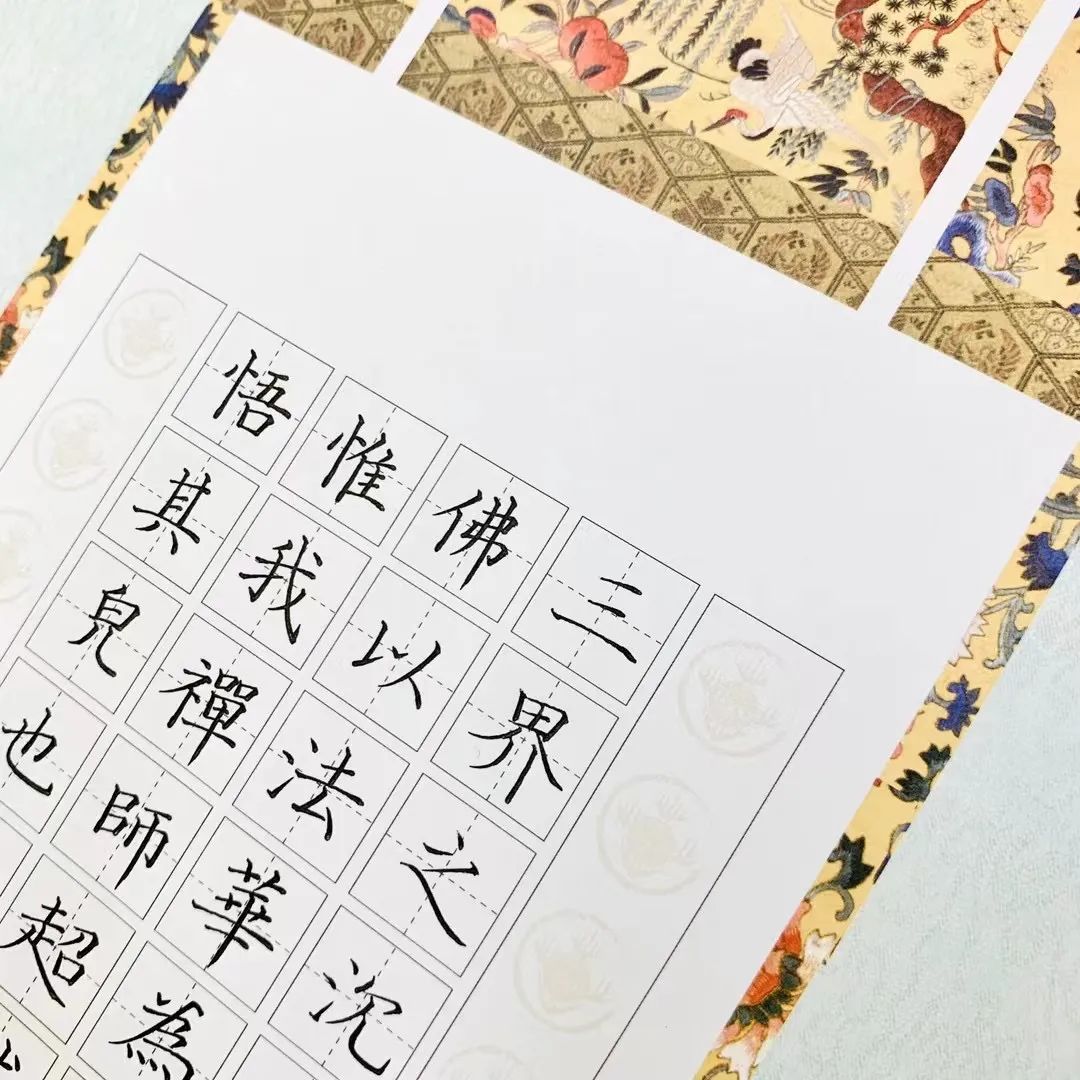 三界之沉
佛以法華為
惟我禪師超
悟其皃也